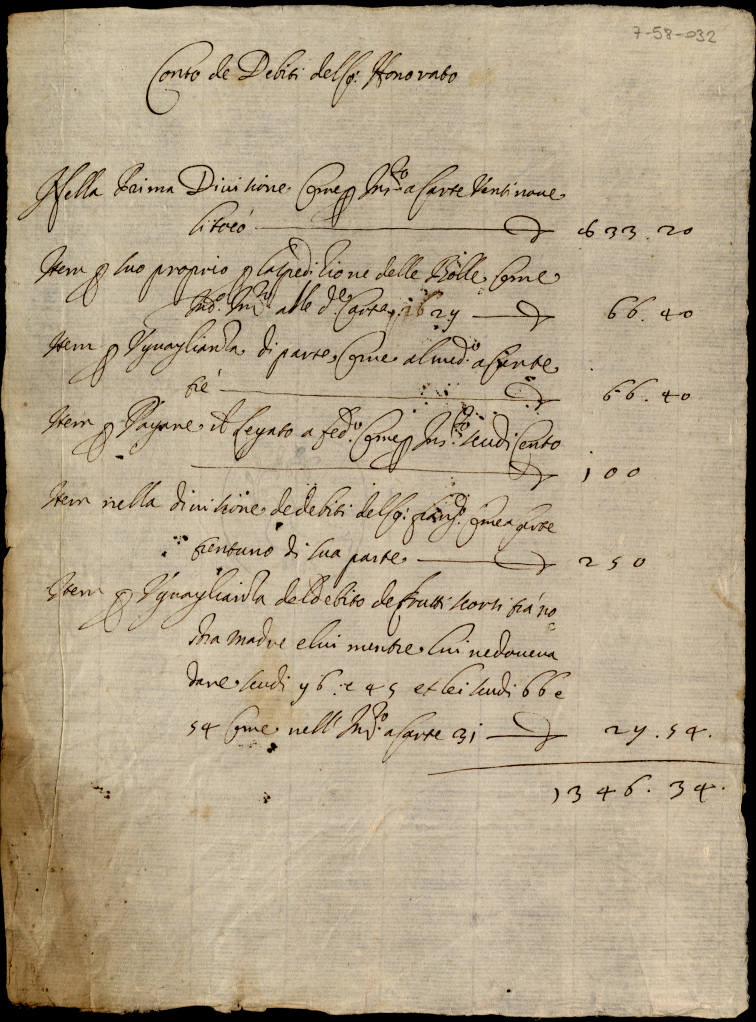 7-58-032
Conto de Debiti del Sr. Honorato
Nella Prima Divisione Come p Insto a Carte Ventinove
633.20
Item p suo proprio p la speditione delle Bolle Come
alle de Carte 27 66.40
Item p Vguaglianza di parte Come al medo a Carte
trè 66.40
Item p Pagare il legato a fedo Come p Insto scudi Cento
100
Item nella divisione de debiti del Sr. Come a Carte
trentuno di sua parte 250
Item p Vguaglianza del debito de frutti scorsi frà no
stra madre e lui mentre lui ne doveva
dare scudi 96. e 45 et lei scudi 66 e
54 Come nell' Insto a Carte 31 29.54.
1346.34.